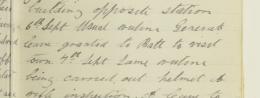 building opposite station
6th Sept Usual routine General
leave granted to Batt to visit
town 7th Sept Same routine
being carried out helmet &
with inspection leave to